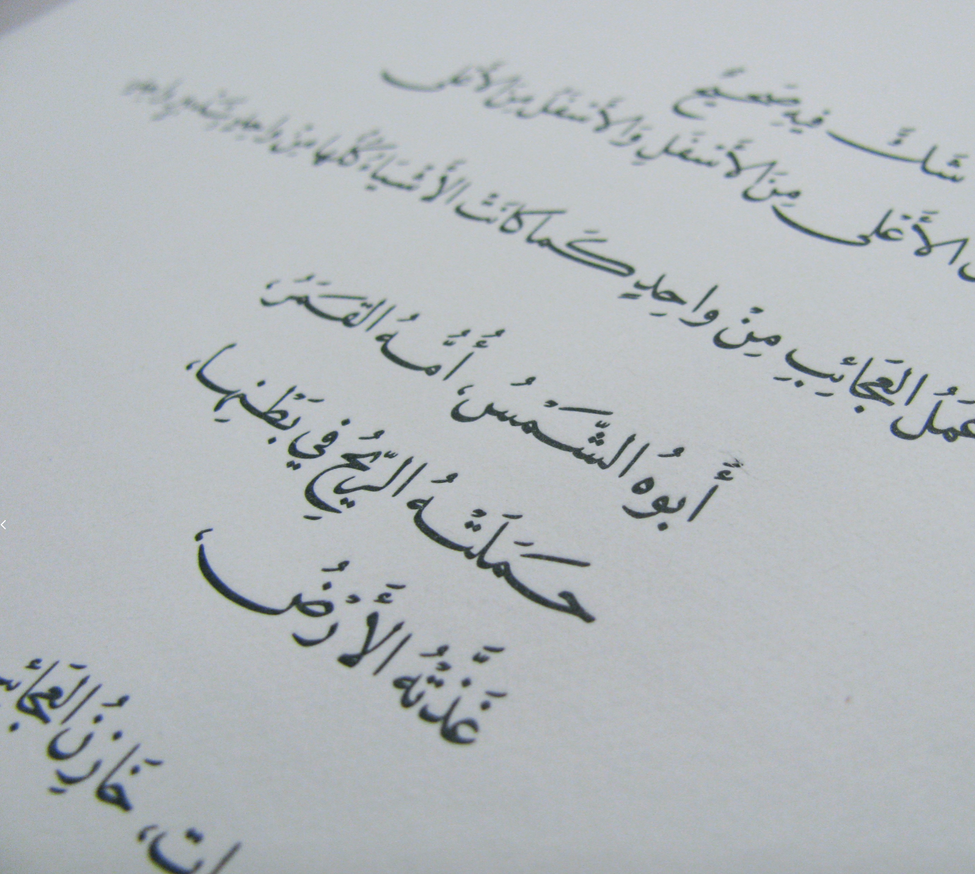 شَكَّ فِيهِ صَحِيحٌ
الأَعْلَى مِنَ الأَسْفَلِ وَالأَسْفَلَ مِنَ الأَعْلَى
عَمَلُ العَجَائِبِ مِنْ وَاحِدٍ كَمَا كَانَتْ الأَشْيَاءُ كُلُّهَا مِنْ وَاحِدٍ
أَبُوهُ الشَّمْسُ، أُمُّهُ القَمَرُ،
حَمَلَتْهُ الرِّيحُ فِي بَطْنِهَا،
غَذَّتْهُ الأَرْضُ،
خَازِنُ العَجَائِبِ